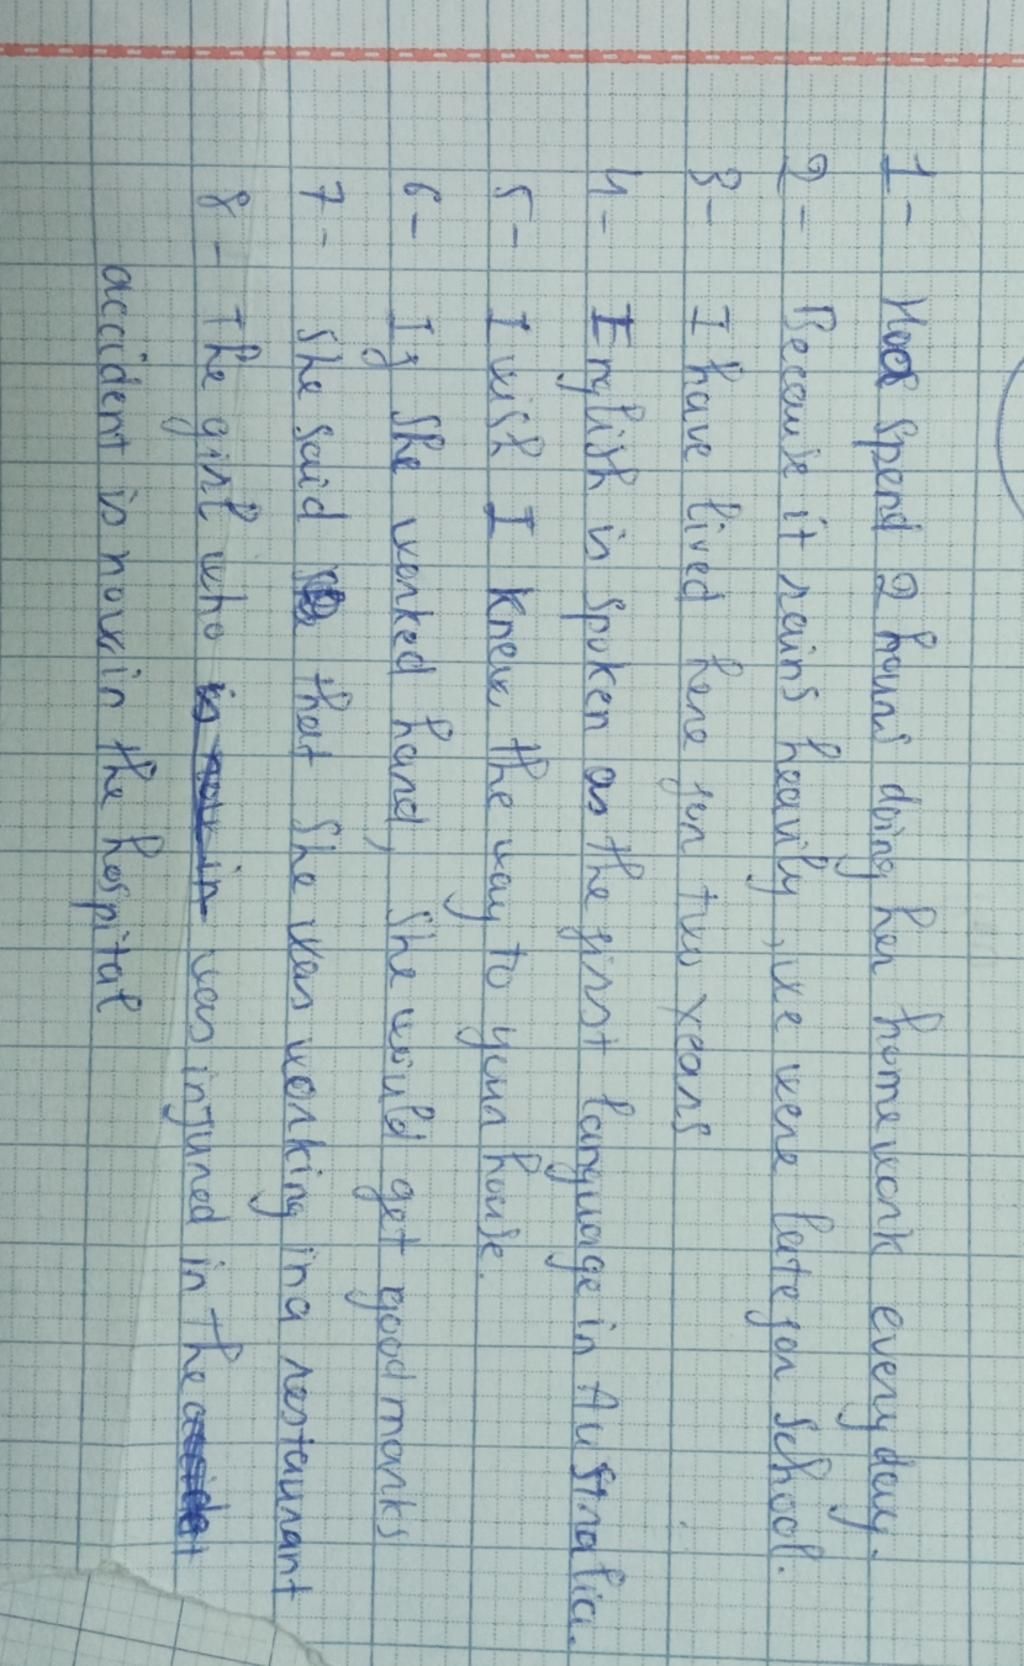 1- Hoa spend 2 hours doing her homework everyday.
2- Because it rains heavily, we were late for school.
3- I have lived here for two years
4- English is spoken as the first language in Australia.
5- I wish I knew the way to your house.
6- If she worked hard, she would get good marks
7- She said that she was working in a restaurant
8- The girl who was injured in the
accident is now in the hospital